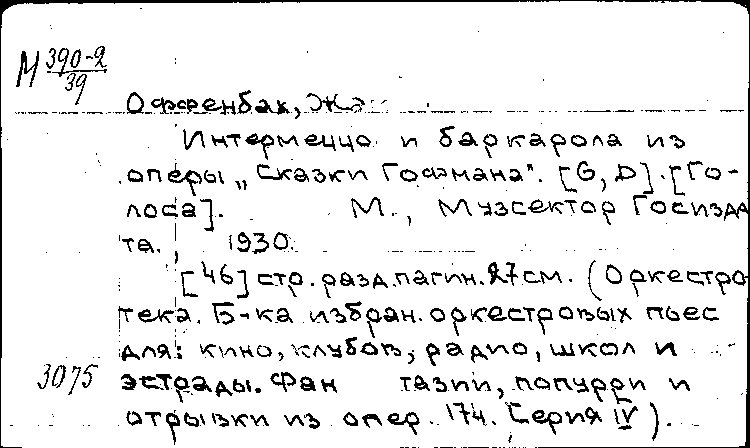 М 390-2
39
Оффенбах, Ж.
Интермеццо и баркарола из
оперы „Сказки Гофмана". [G, D]. [Го-
лоса]. М., Музсектор Госизда
та., 1930.
[46] стр. разд. пагин. 27 см. (Оркестро
тека. Б-ка избран. оркестровых пьес
для: кино, клубов, радио, школ и
3075 эстрады. Фан тазии, попурри и
отрывки из опер. 174. Серия IV).